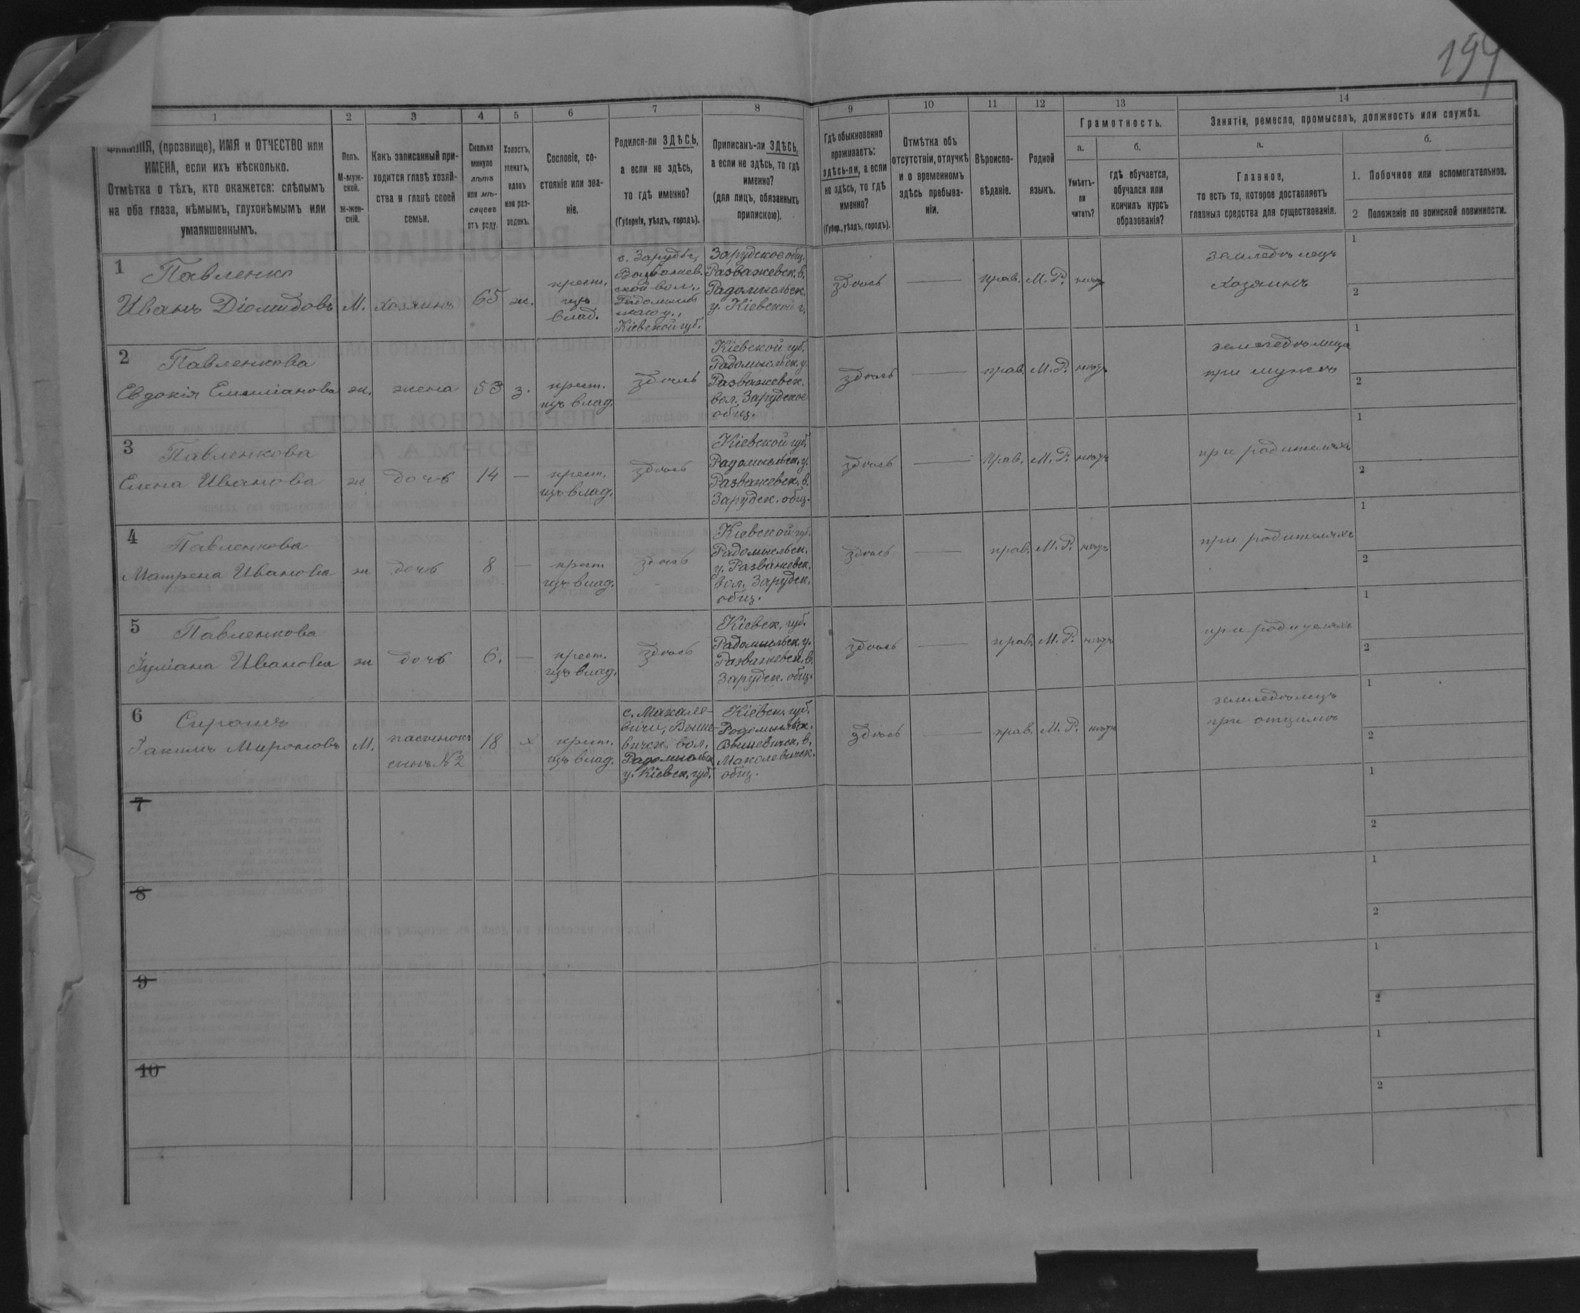 199
1 2 3 4 5 6 7 8 9 10 11 12 13 14
ФАМИЛІЯ, (прозвище), ИМЯ и ОТЧЕСТВО или
ИМЕНА, если ихъ нѣсколько.
Отмѣтка о тѣхъ, кто окажется: слѣпымъ
на оба глаза, нѣмымъ, глухонѣмымъ или
умалишеннымъ.
Полъ.
М-муж-
ской.
ж-жен-
скій.
Какъ записанный при-
ходится главѣ хозяй-
ства и главѣ своей
семьи.
Сколько
минуло
лѣтъ
или мѣ-
сяцевъ
отъ роду.
Холостъ,
женатъ,
вдовъ
или раз-
веденъ.
Сословіе, со-
стояніе или зва-
ніе.
Родился-ли ЗДѢСЬ,
а если не здѣсь,
то гдѣ именно?
(Губернія, уѣздъ, городъ).
Приписанъ-ли ЗДѢСЬ,
а если не здѣсь, то гдѣ
именно?
(для лицъ, обязанныхъ
припискою).
Гдѣ обыкновенно
проживаетъ:
здѣсь-ли, а если
не здѣсь, то гдѣ
именно?
(Губер., уѣздъ, городъ).
Отмѣтка объ
отсутствіи, отлучкѣ
и о временномъ
здѣсь пребыва-
ніи.
Вѣроиспо-
вѣданіе.
Родной
языкъ.
Грамотность.
а.
Умѣетъ-
ли
читать?
б.
гдѣ обучается,
обучался или
кончилъ курсъ
образованія?
Занятіе, ремесло, промыселъ, должность или служба.
а.
Главное,
то есть то, которое доставляетъ
главныя средства для существованія.
б.
1. Побочное или вспомогательное.
2 Положеніе по воинской повинности.
1
Павленко
Иванъ Діомидовъ
М.
хозяинъ
65
ж.
крест.
изъ
влад.
с. Зарудье,
Разважев
ской вол.,
Радомысль
скаго у.,
Кіевской губ.
Зарудское общ.
Разважевск. в.
Радомысльск.
у. Кіевской г.
здѣсь
прав.
М. Р.
нѣтъ
земледѣлецъ
хозяинъ
1
2
2
Павленкова
Евдокія Емиліанова
ж.
жена
53
з.
крест.
изъ влад.
здѣсь
Кіевской губ.
Радомысльск. у.
Разважевск.
вол. Зарудское
общ.
здѣсь
прав.
М. Р.
нѣтъ
земледѣлица
при мужѣ
1
2
3
Павленкова
Елена Иванова
ж
дочь
14
—
крест.
изъ влад.
здѣсь
Кіевской губ.
Радомысльск. у.
Разважевск. в.
Зарудск. общ.
здѣсь
прав.
М. Р.
нѣтъ
при родителяхъ
1
2
4
Павленкова
Матрена Иванова
ж
дочь
8
—
крест
изъ влад.
здѣсь
Кіевской губ.
Радомысльск.
у. Разважевск.
вол. Зарудск.
общ.
здѣсь
прав.
М. Р.
нѣтъ
при родителяхъ
1
2
5
Павленкова
Іуліана Иванова
ж
дочь
6.
—
крест.
изъ влад.
здѣсь
Кіевск. губ.
Радомысльск. у.
Разважевск. в.
Зарудск. общ.
здѣсь
прав.
М. Р.
нѣтъ
при родителяхъ
1
2
6
Іакимъ Мироновъ
М.
пасынокъ
сынъ №2
18
х
крест.
изъ влад.
Радомысльск.
у. Кіевск. губ.
Кіевск. губ.
Радомысльск.
общ.
здѣсь
прав.
М. Р.
нѣтъ
земледѣлецъ
при отчимѣ
1
2
7
1
2
8
1
2
9
1
2
10
1
2